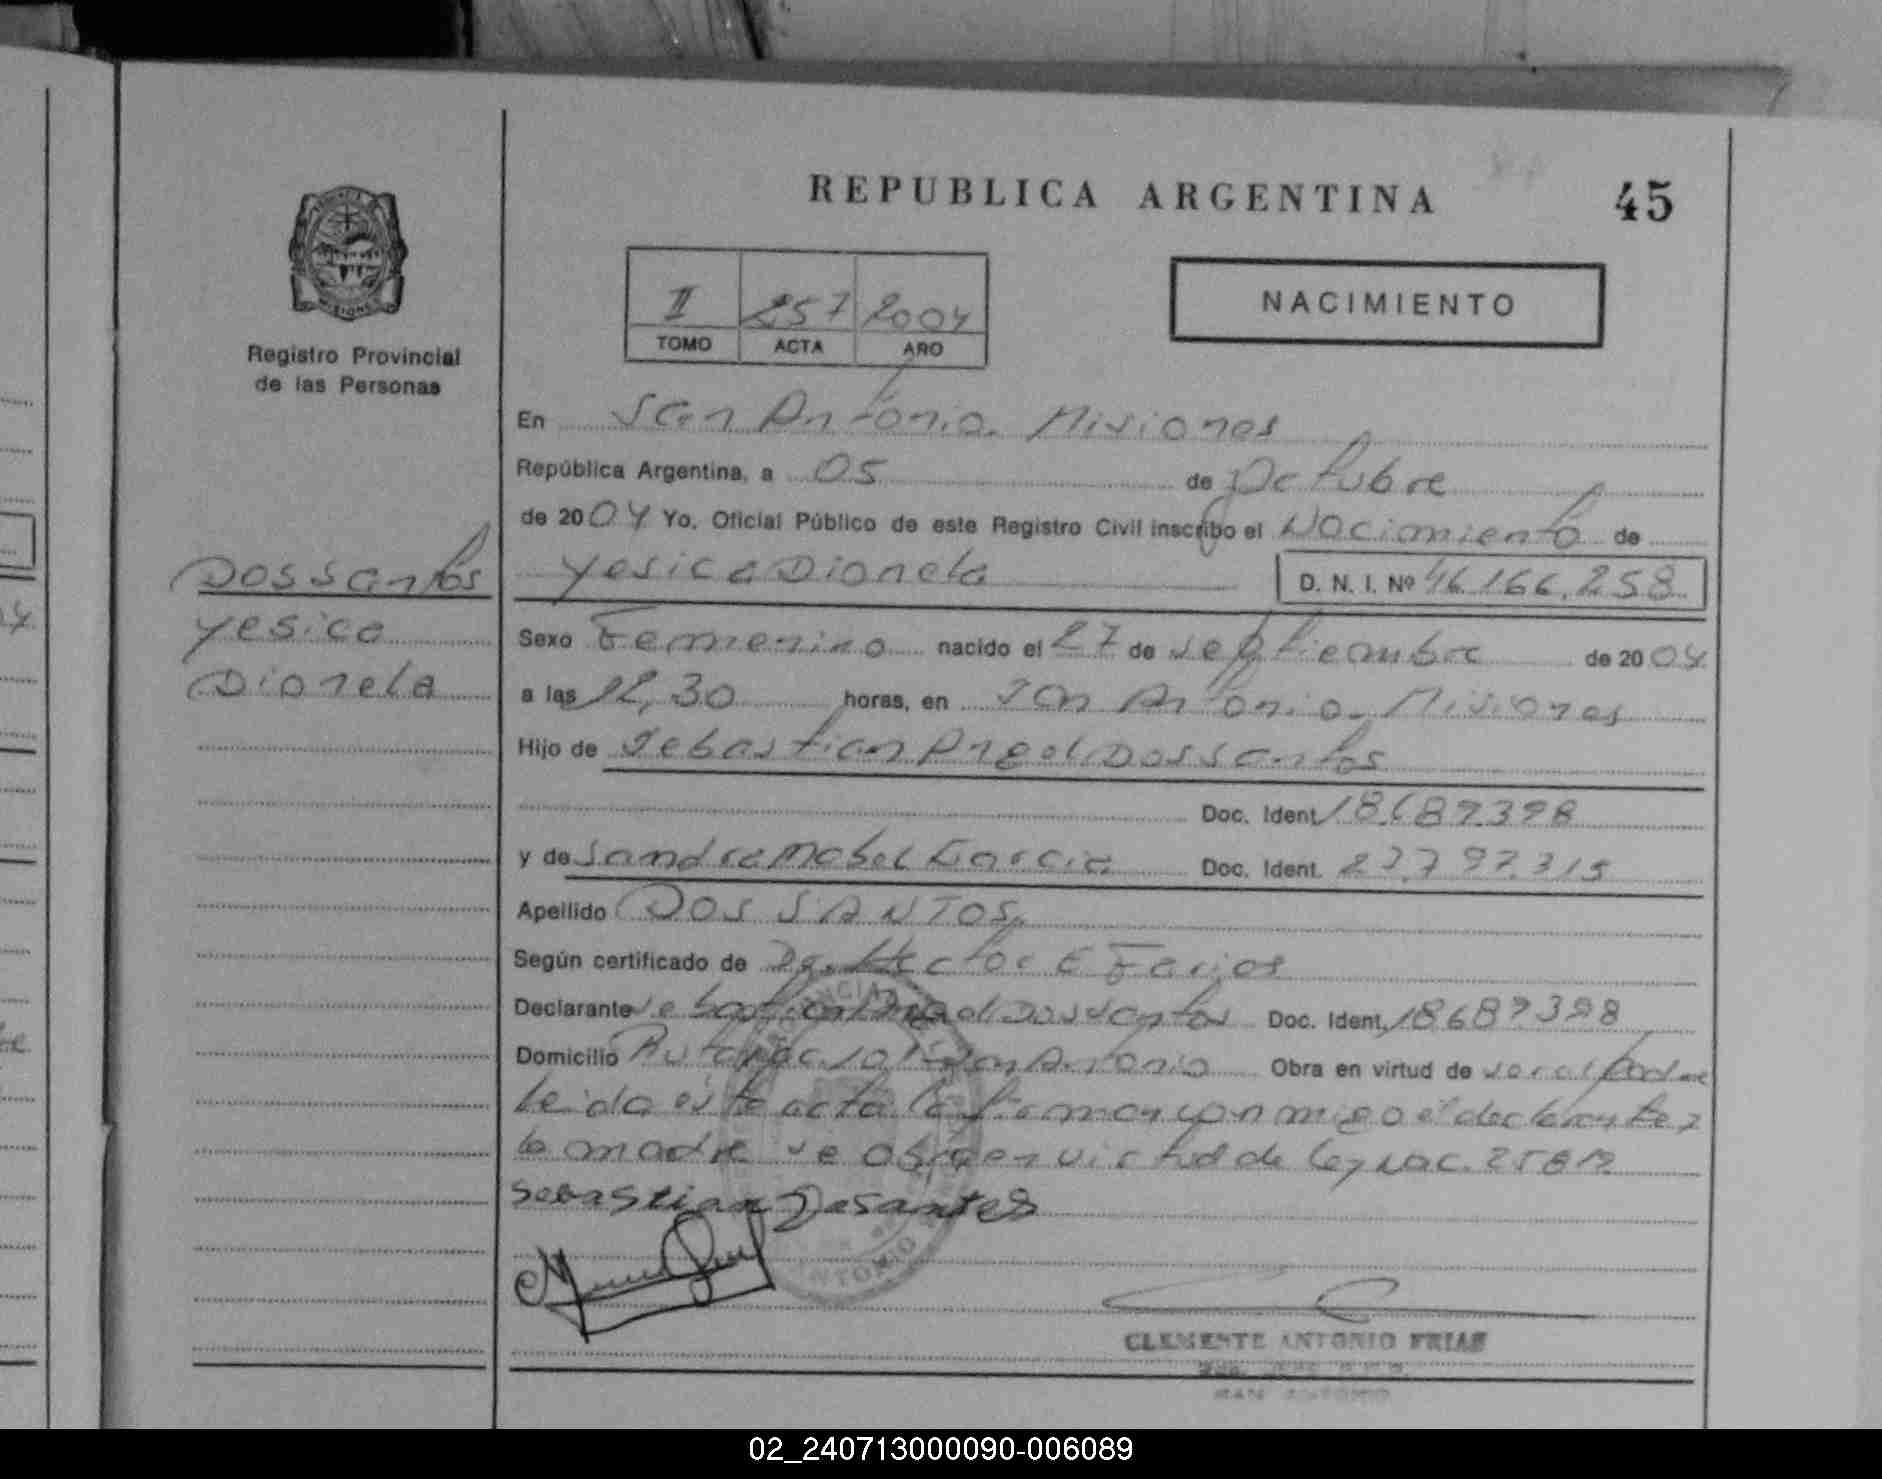 REPUBLICA ARGENTINA
45
II 257 2004
TOMO ACTA AÑO
NACIMIENTO
Registro Provincial
de las Personas
En San Antonio. Misiones
República Argentina, a 05 de Octubre
de 2004 Yo, Oficial Público de este Registro Civil inscribo el Nacimiento de
Yesica Dionela D. N. I. Nº 46.166.258
Dos Santos
Yesica
Dionela
Sexo Femenino nacido el 27 de septiembre de 2004
a las 12,30 horas, en San Antonio. Misiones
Hijo de Sebastian Angel Dos Santos
Doc. Ident. 18.689.398
y de Sandra Mabel Garcia Doc. Ident.
Apellido DOS SANTOS.
Según certificado de Dr. Hector E
Declarante Sebastian Angel Dos Santos Doc. Ident. 18689398
Domicilio San Antonio Obra en virtud de ser el padre
leida este acta la firman conmigo el declarante y
la madre se obra en virtud de Ley Nac.
Sebastian Dosantos
CLEMENTE ANTONIO FRIAS
SAN ANTONIO
02_240713000090-006089